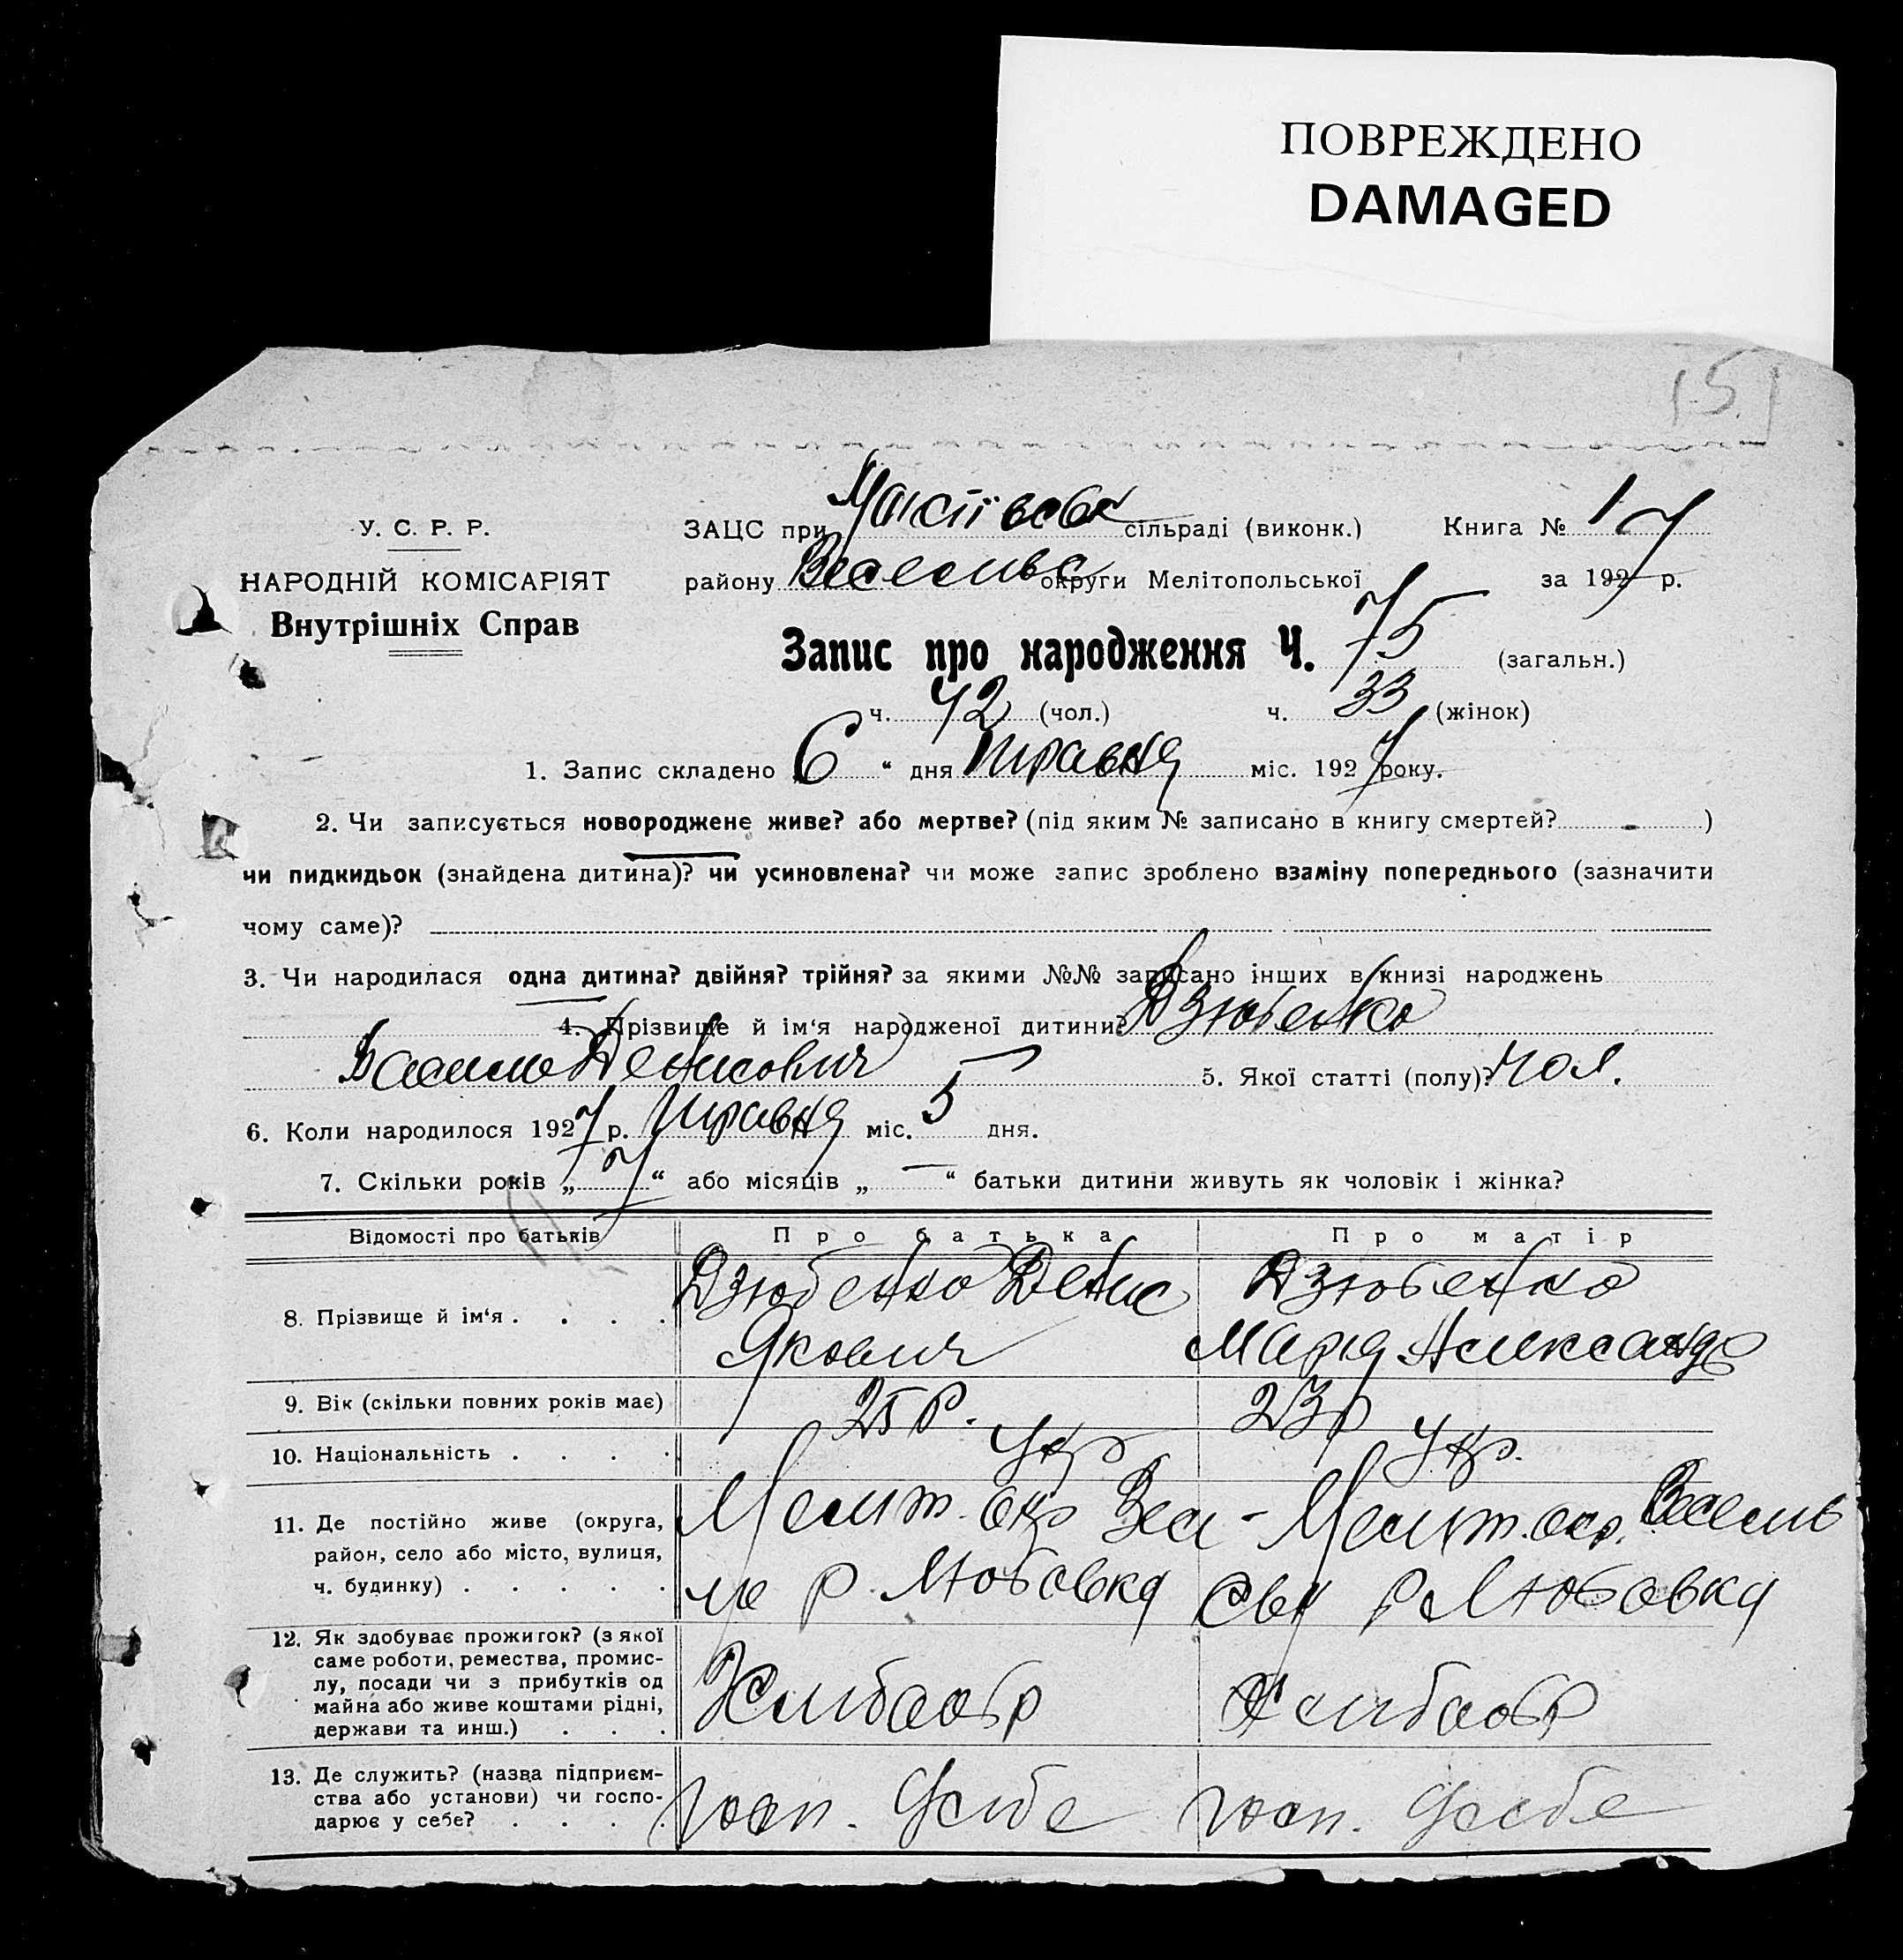 ПОВРЕЖДЕНО
DAMAGED
15
У. С. Р. Р.
НАРОДНІЙ КОМІСАРІЯТ
Внутрішніх Справ
ЗАЦС при сільраді (виконк.) Книга № 1
району Веселівс округи Мелітопольської за 1927 р.
Запис про народження Ч. 75 (загальн.)
ч. 42 (чол.) ч. 33 (жінок)
1. Запис складено „6“ дня травня міс. 1927 року.
2. Чи записується новороджене живе? або мертве? (під яким № записано в книгу смертей? - )
чи пидкидьок (знайдена дитина)? чи усиновлена? чи може запис зроблено взаміну попереднього (зазначити
чому саме)?
3. Чи народилася одна дитина? двійня? трійня? за якими №№ записано інших в книзі народжень
4. Прізвище й ім‘я народженої дитини? Дзюбенко
Василь Денисович 5. Якої статті (полу)? чол.
6. Коли народилося 1927 р. травня міс. 5 дня.
7. Скільки років „7“ або місяців „—“ батьки дитини живуть як чоловік і жінка?
Відомості про батьків Про батька Про матір
8. Прізвище й ім‘я . . . . Дзюбенко Денис Дзюбенко
Якович Марія Александр
9. Вік (скільки повних років має) 25 р. 23 р
10. Національність . . . . Укр Укр.
11. Де постійно живе (округа, Меліт. окр Весе- Меліт. окр. Веселив
район, село або місто, вулиця, р. Любовка р Любовка
ч. будинку) . . . . .
12. Як здобуває прожиток? (з якої
саме роботи, ремества, промис-
лу, посади чи з прибутків од Хлибообр Хлибообр
майна або живе коштами рідні,
держави та инш.) . . .
13. Де служить? (назва підприєм-
ства або установи) чи госпо- госп. У себе госп. У себе
дарює у себе? . . . .